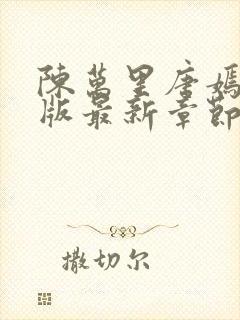 陳萬里唐嫣
版最新章節
撒切尔